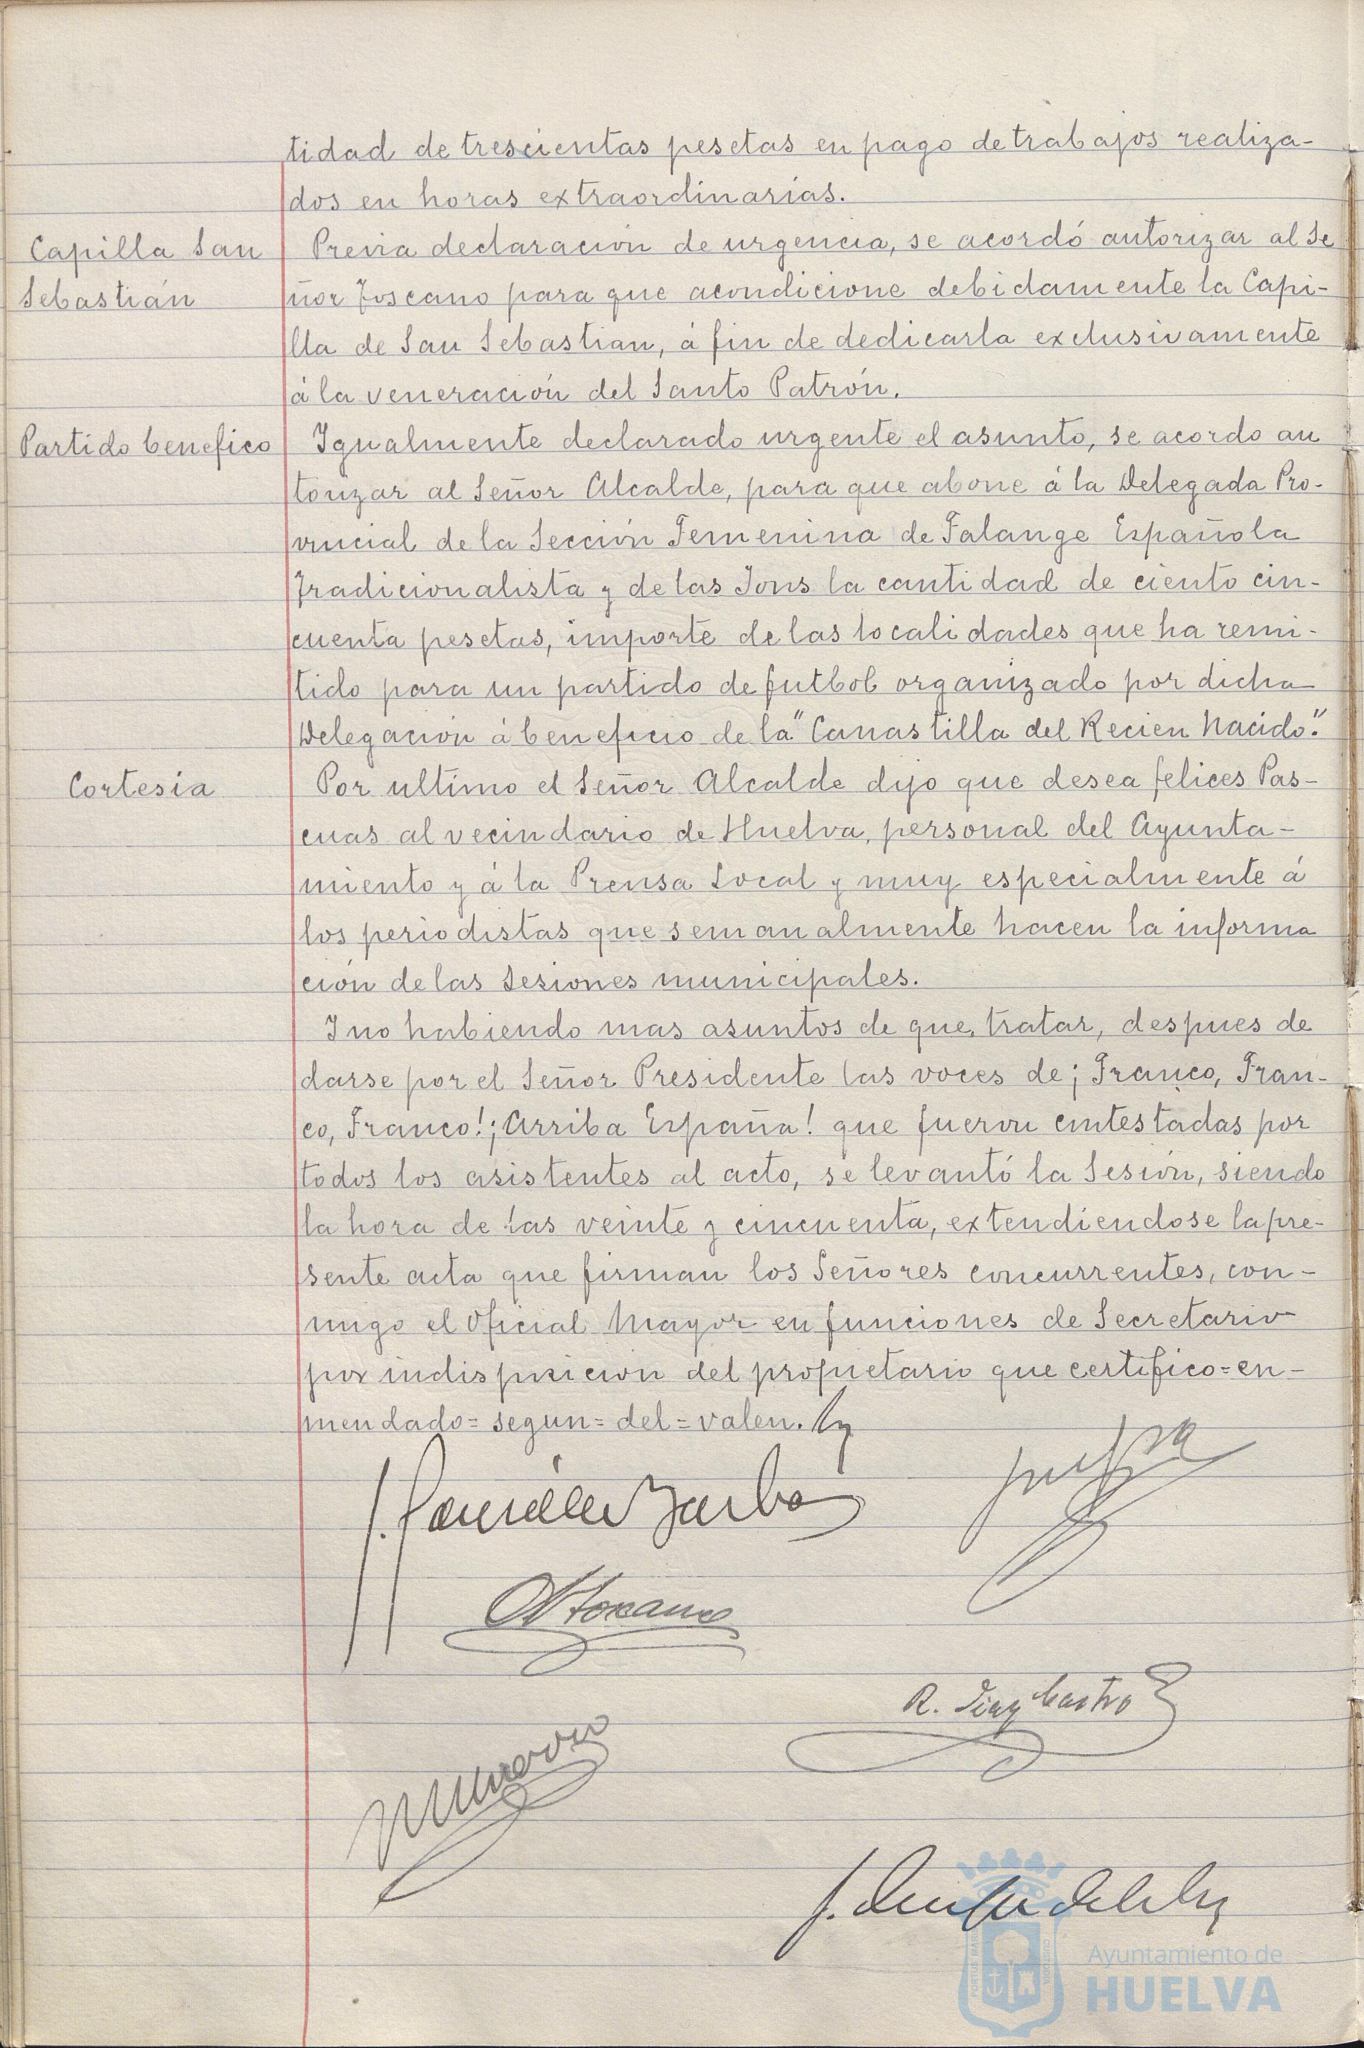 tidad de trescientas pesetas en pago de trabajos realiza-
dos en horas extraordinarias.
Capilla San
Sebastián
Previa declaración de urgencia, se acordó autorizar al Se
ñor Toscano para que acondicione debidamente la Capi-
lla de San Sebastian, á fin de dedicarla exclusivamente
á la veneración del Santo Patrón.
Partido benefico
Igualmente declarado urgente el asunto, se acordo au
torizar al Señor Alcalde, para que abone á la Delegada Pro-
vincial de la Sección Femenina de Falange Española
Tradicionalista y de las Jons la cantidad de ciento cin-
cuenta pesetas, importe de las localidades que ha remi-
tido para un partido de futbol organizado por dicha
Delegación á beneficio de la "Canastilla del Recien Nacido".
Cortesia
Por ultimo el Señor Alcalde dijo que desea felices Pas-
cuas al vecindario de Huelva, personal del Ayunta-
miento y á la Prensa Local y muy especialmente á
los periodistas que semanalmente hacen la informa
ción de las Sesiones municipales.
Y no habiendo mas asuntos de que tratar, despues de
darse por el Señor Presidente las voces de ¡Franco, Fran-
co, Franco! ¡Arriba España! que fueron contestadas por
todos los asistentes al acto, se levantó la Sesión, siendo
la hora de las veinte y cincuenta, extendiendose la pre-
sente acta que firman los Señores concurrentes, con-
migo el Oficial Mayor en funciones de Secretario
por indisposicion del propietario que certifico=en-
mendado=segun=del=valen.
Toscano
R. Diaz Castro
Ayuntamiento de
HUELVA